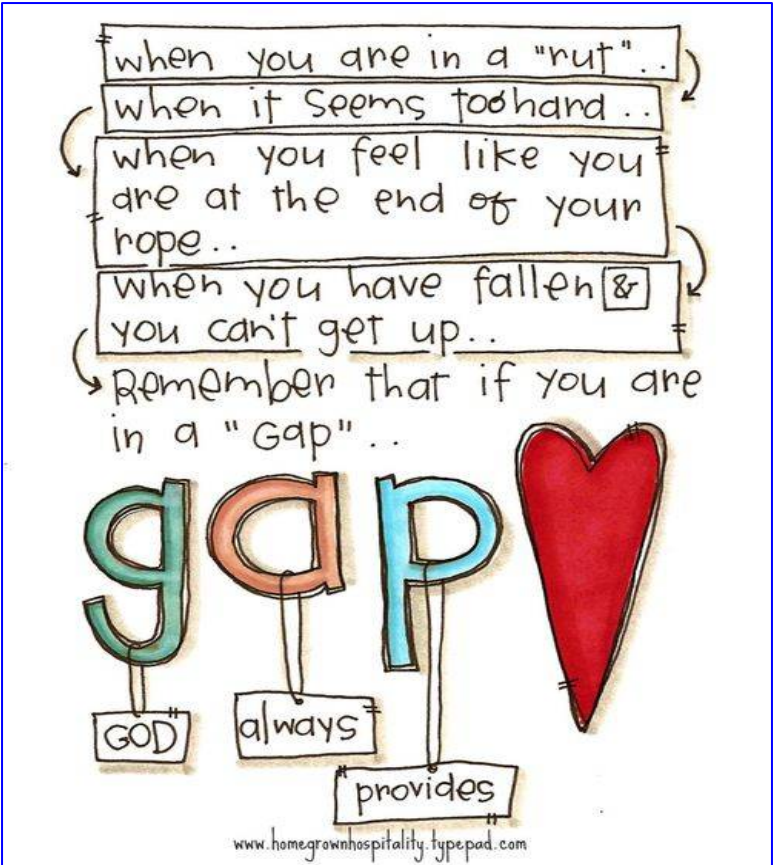 when you are in a "rut"..
when it seems too hard..
when you feel like you
are at the end of your
rope..
when you have fallen &
you can't get up..
Remember that if you are
in a "Gap"..
gap
GOD
always
provides
www.homegrownhospitality.typepad.com